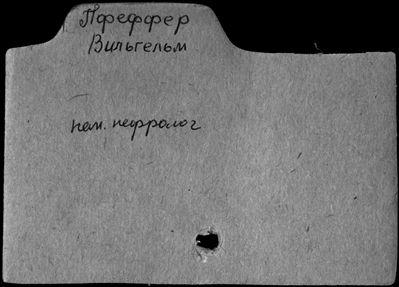 Пфеффер
Вильгельм
нем. нефролог